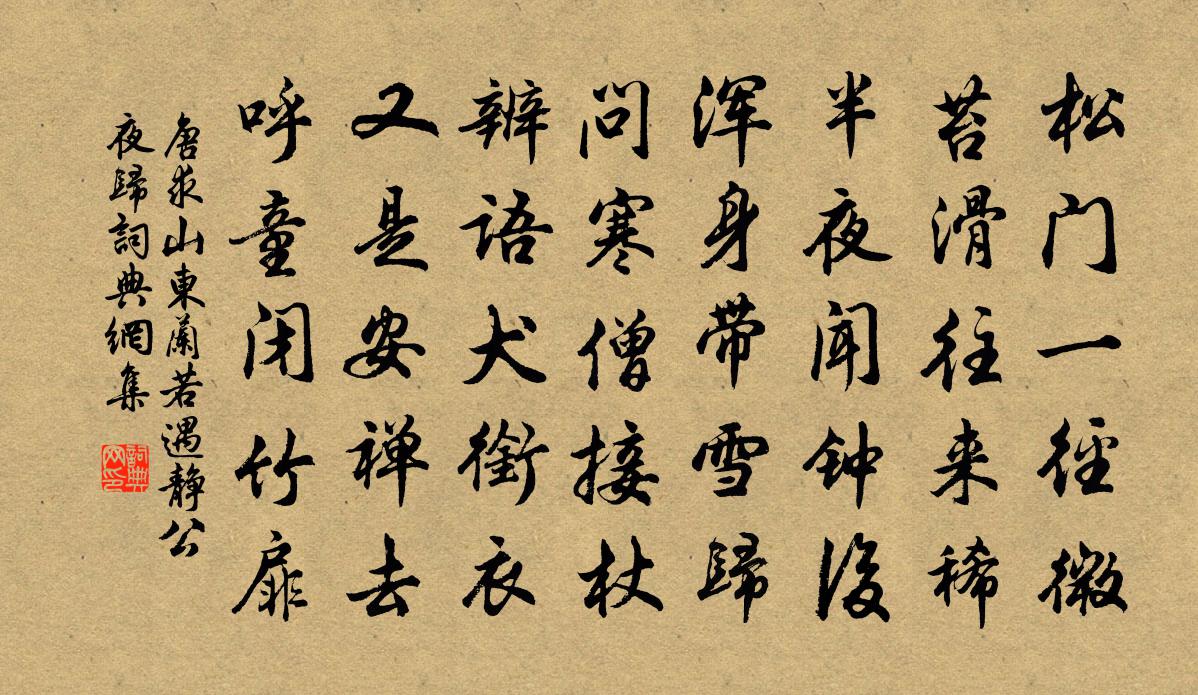 松门一径微
苔滑往来稀
半夜闻钟後
浑身带雪歸
问寒僧接杖
辨语犬銜衣
又是安禅去
呼童闭竹扉
唐求山東蘭若遇静公
夜歸詞典網集
詞典网印